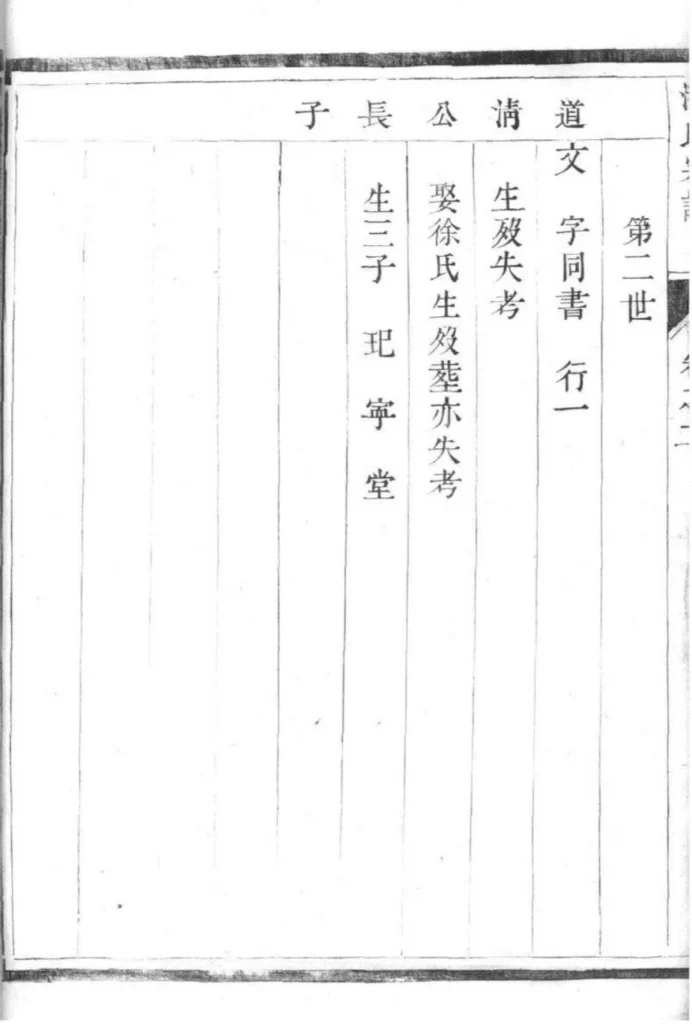 第二世
道清公長子
文 字同書 行一
生歿失考
娶徐氏生歿塟亦失考
生三子 玘 寧 堂